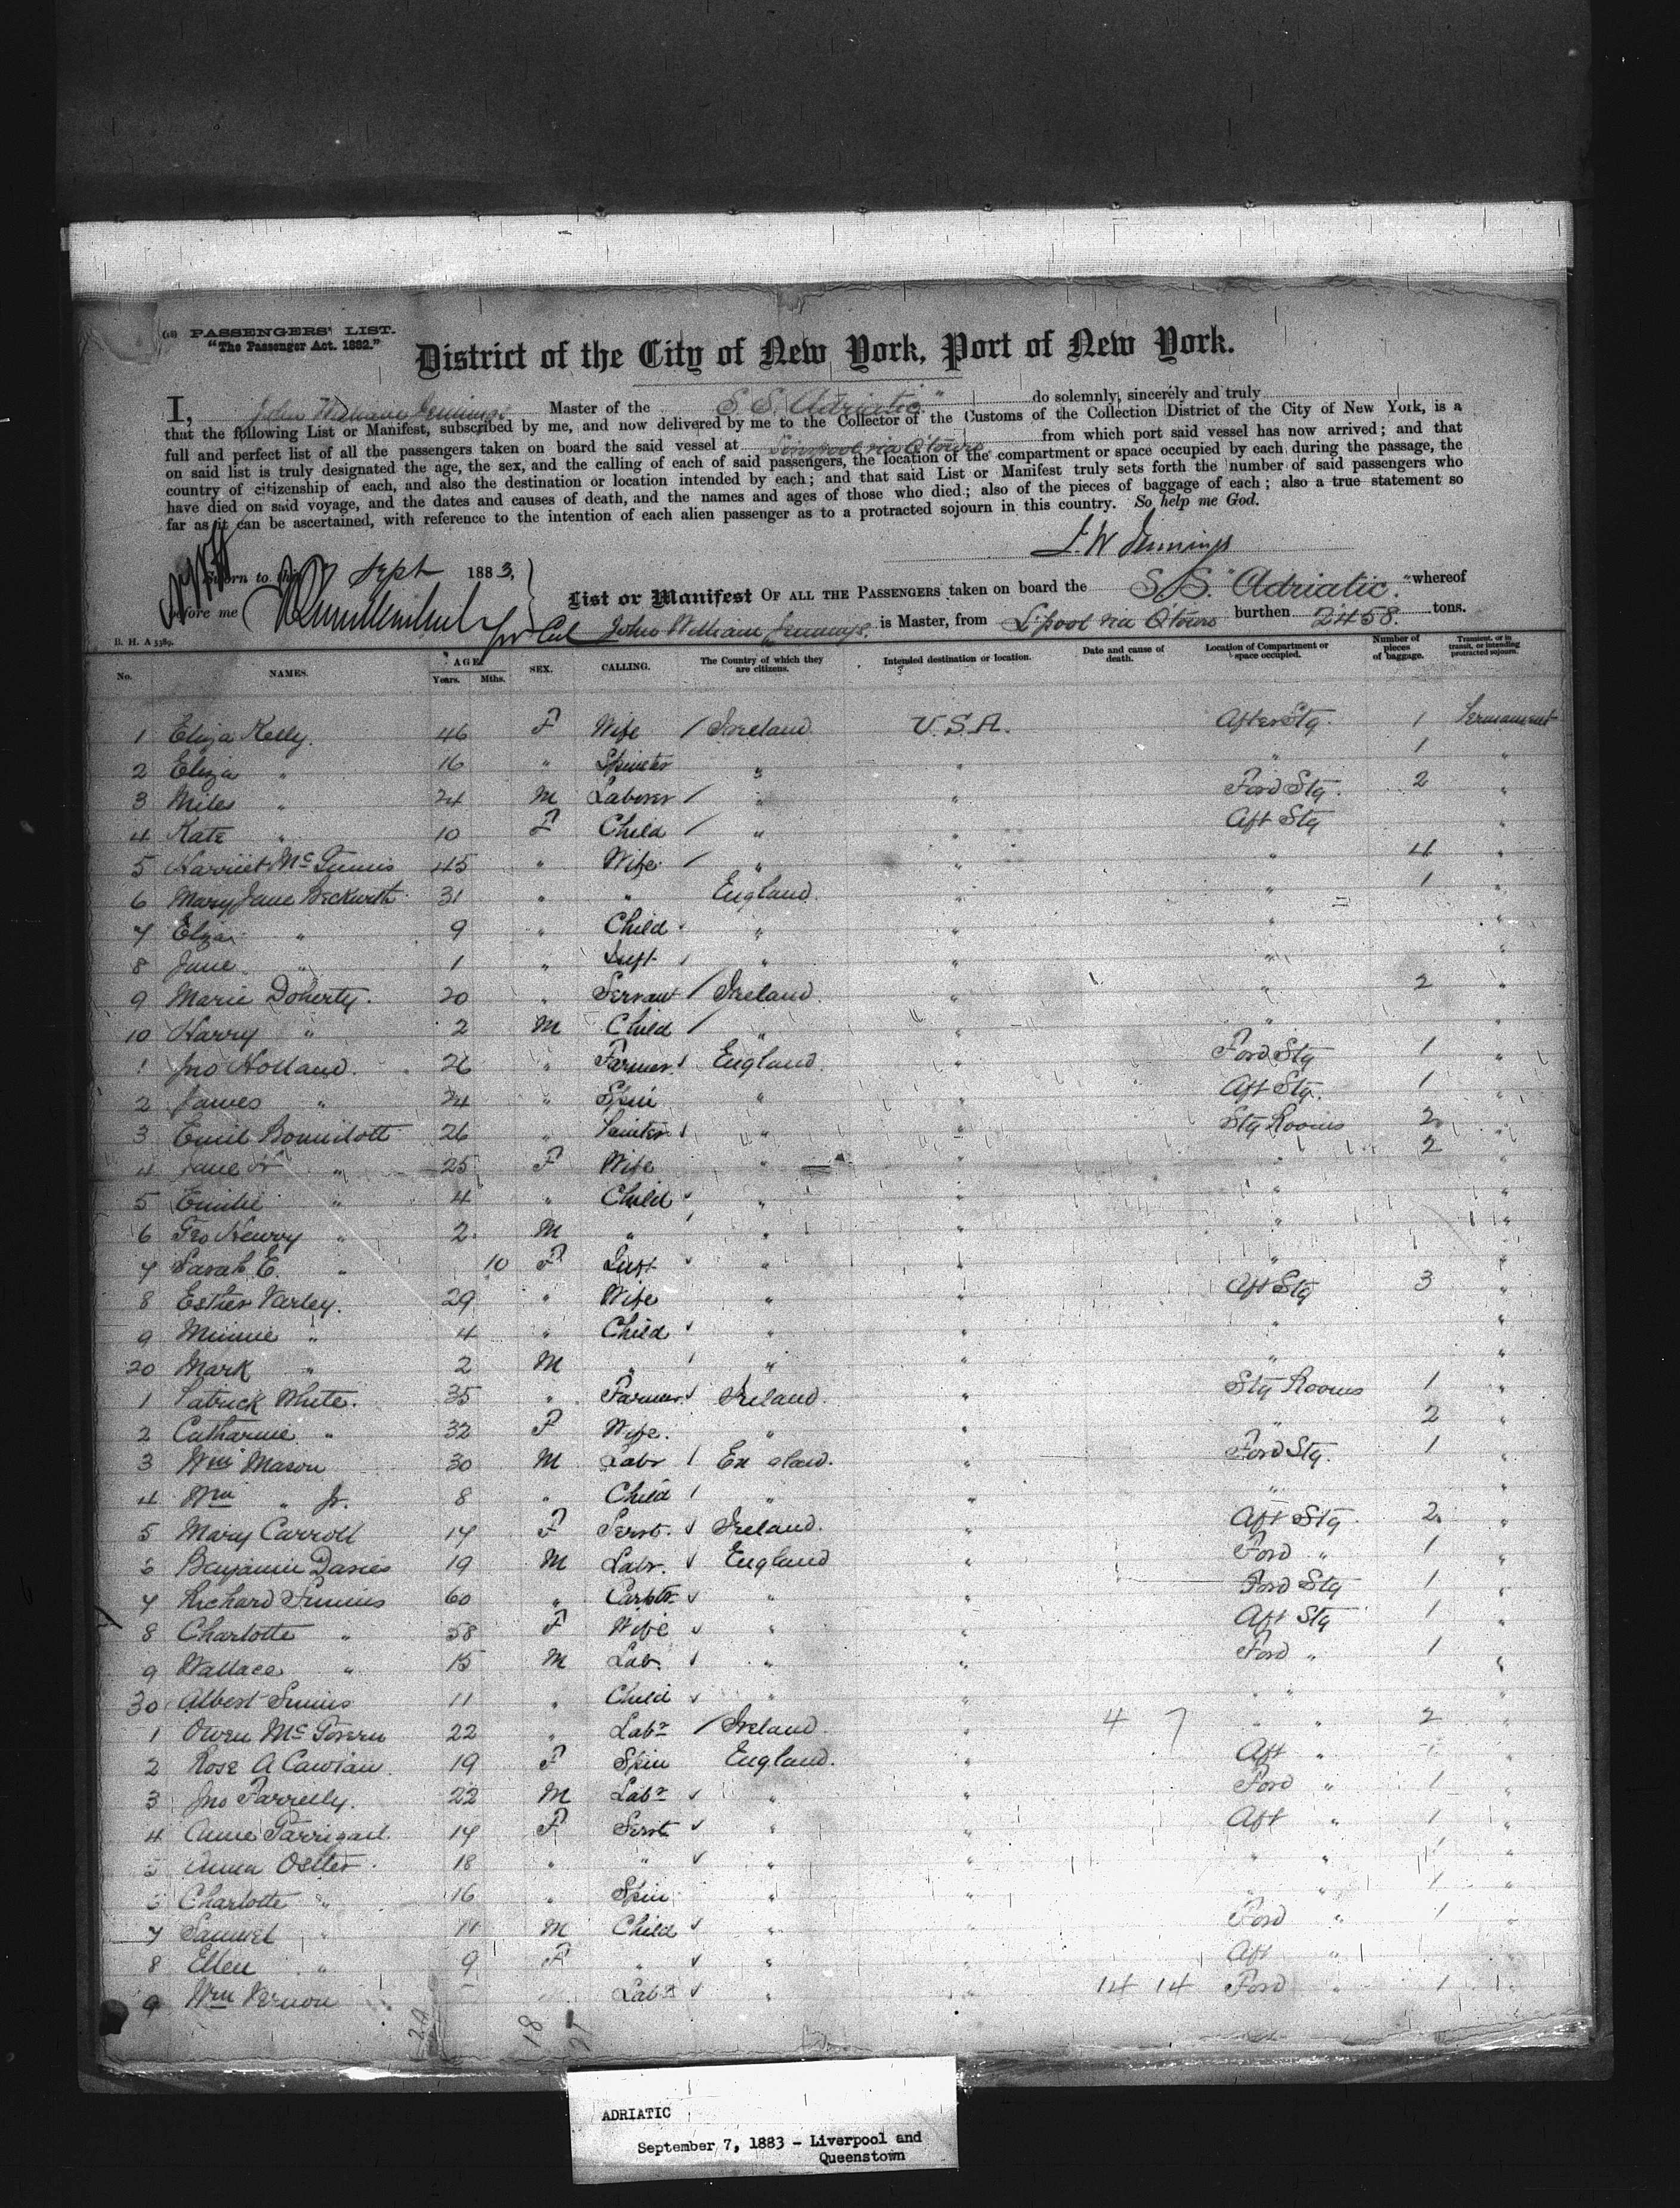 PASSENGERS' LIST.
"The Passenger Act. 1882."
District of the City of New York, Port of New York.
I, John William Jennings Master of the S.S. Adriatic" do solemnly, sincerely and truly
that the following List or Manifest, subscribed by me, and now delivered by me to the Collector of the Customs of the Collection District of the City of New York, is a
full and perfect list of all the passengers taken on board the said vessel at Liverpool via Q'town from which port said vessel has now arrived; and that
on said list is truly designated the age, the sex, and the calling of each of said passengers, the location of the compartment or space occupied by each during the passage, the
country of citizenship of each, and also the destination or location intended by each; and that said List or Manifest truly sets forth the number of said passengers who
have died on said voyage, and the dates and causes of death, and the names and ages of those who died; also of the pieces of baggage of each; also a true statement so
far as it can be ascertained, with reference to the intention of each alien passenger as to a protracted sojourn in this country. So help me God.
J. W Jennings
Sworn to this 7 Sept 1883,
before me
List or Manifest OF ALL THE PASSENGERS taken on board the S.S. "Adriatic." whereof
John William Jennings, is Master, from L'pool via Q'town burthen 2458. tons.
B. H. A 5389.
No. NAMES. AGE. Years. Mths. SEX. CALLING. The Country of which they are citizens. Intended destination or location. Date and cause of death. Location of Compartment or space occupied. Number of pieces of baggage. Transient, or in transit, or intending protracted sojourn.
1 Eliza Kelly. 46 F Wife / Ireland U.S.A. After Stg. 1 Permanent
2 Eliza " 16 " Spinster " " " 1 "
3 Miles " 24 M Laborer / " " Ford Stg. 2 "
4 Kate " 10 F Child / " " Aft Stg "
5 Harriet 45 " Wife / " " " 4 "
6 Mary Jane Beckwith 31 " " England. " 1 "
7 Eliza " 9 " Child " " " "
8 Jane " 1 " Inft " " " "
9 Marie Doherty. 20 " Servant / Ireland. " " 2 "
10 Harry " 2 M Child / " " " "
1 Jno Holland. 26 " Farmer England. " Ford Stg 1 "
2 James " 24 " Spin " " Aft Stg. 1 "
3 Emil 26 " " " Stg Rooms 2 "
4 Jane " 25 F Wife " " " 2 "
5 Emilie " 4 " Child " " " "
6 Geo Henry " 2 M " " " " "
7 Sarah E. " 10 F Inft " " " "
8 Esther Varley. 29 " Wife " " Aft Stg 3 "
9 Minnie " 4 " Child " " " "
20 Mark " 2 M " " " " "
1 Patrick White. 35 " Farmer Ireland. " Stg Rooms 1 "
2 Catharine " 32 F Wife. " " " 2 "
3 Wm Mason 30 M Labr England. " Ford Stg. 1 "
4 Wm " Jr. 8 " Child " " " "
5 Mary Carroll 17 F Servt. Ireland. " Aft Stg 2 "
6 Benjamin Davies 19 M Labr. England " Ford " 1 "
7 Richard 60 " " " Ford Stg 1 "
8 Charlotte " 58 F Wife " " Aft Stg 1 "
9 Wallace " 15 M Lab. " " Ford " 1 "
30 Albert 11 " Child " " " " "
1 Owen McGovern 22 " Labr / Ireland " 4 7 " " 2 "
2 Rose A 19 F Spin England. " Aft " "
3 Jno Farrelly. 22 M Labr " " Ford " 1 "
4 Anne 17 F Servt " " Aft " 1 "
5 Anna Ostler 18 " " " " " " 1 "
6 Charlotte " 16 " Spin " " " " 1 "
7 Samuel " 11 M Child " " Ford " 1 "
8 Ellen " 9 F " " " Aft " "
9 Wm Vernon Labr " " 14 14 Ford " 1 "
20 18
ADRIATIC
September 7, 1883 - Liverpool and
Queenstown